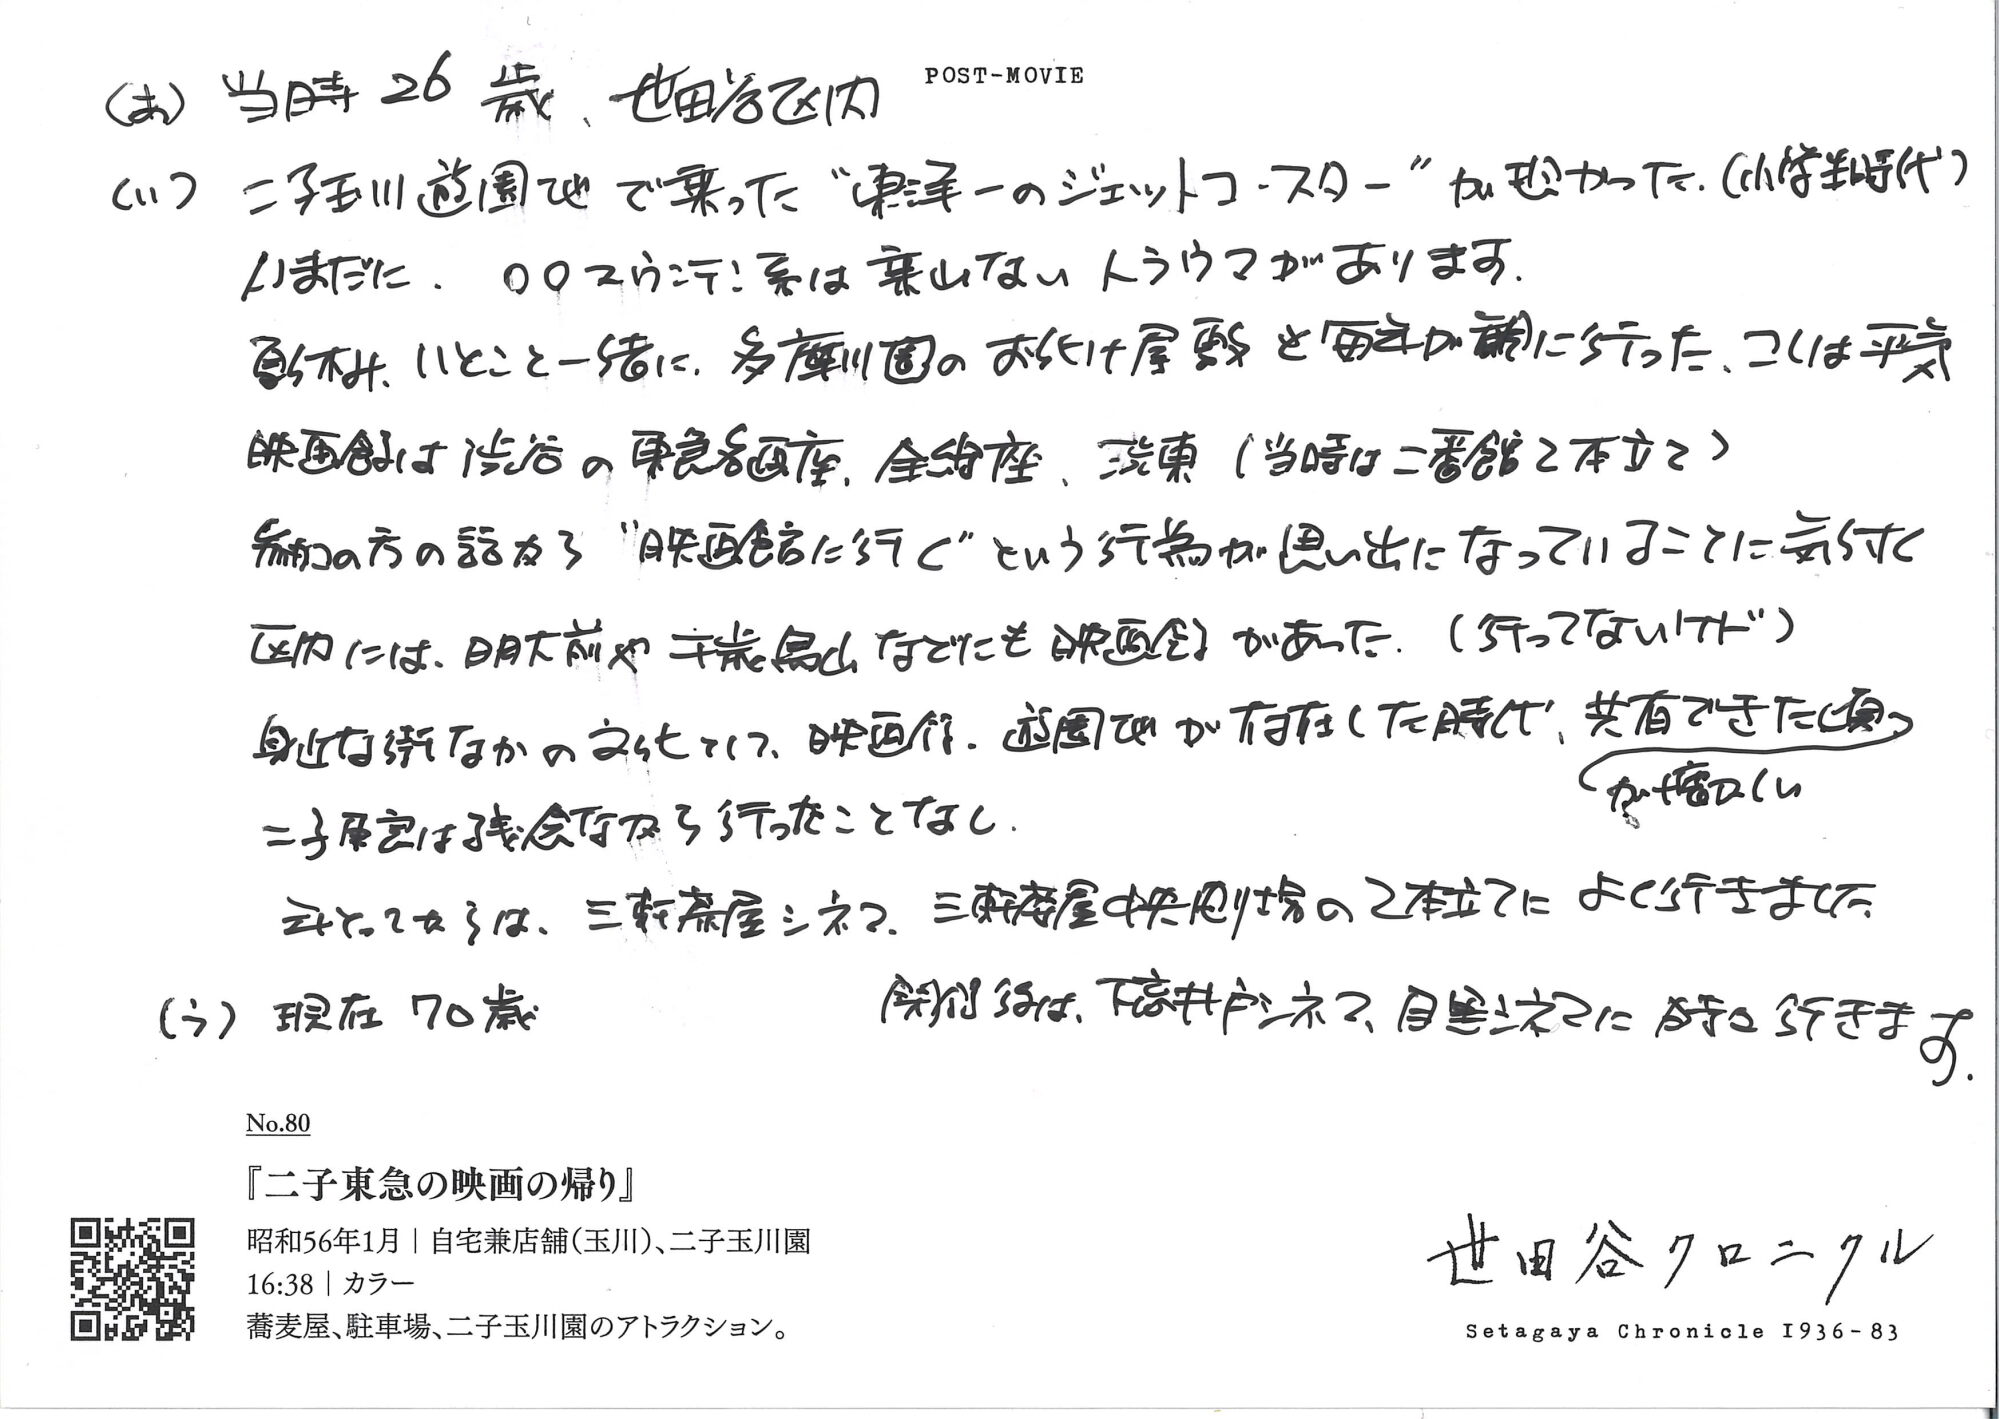 POST-MOVIE
(あ) 当時 26 歳、世田谷区内
(い) 二子玉川遊園地で乗った“東洋一のジェットコースター”が恐かった.(小学生時代)
いまだに、○○マウンテン系は乗れない トラウマがあります.
夏休み、いとこと一緒に、多摩川園のお化け屋敷と に行った、コレは平気
映画館は渋谷の東急名画座、全線座、渋東(当時は二番館2本立て)
参加の方の話から“映画館に行く”という行為が思い出になっていることに気付く
区内には、明大前や千歳烏山などにも映画館があった.(行ってないけド)
身近な街なかの文化として、映画館、遊園地が存在した時代、共有できた頃
が懐しい
二子東急は残念ながら行ったことなし.
になってからは、三軒茶屋シネマ、三軒茶屋中央劇場の2本立てによく行きました.
閉館後は、下高井戸シネマ、目黒シネマに時々行きます.
(う) 現在 70歳
No.80
『二子東急の映画の帰り』
昭和56年1月｜自宅兼店舗(玉川)、二子玉川園
16:38｜カラー
蕎麦屋、駐車場、二子玉川園のアトラクション。
世田谷クロニクル
Setagaya Chronicle 1936-83